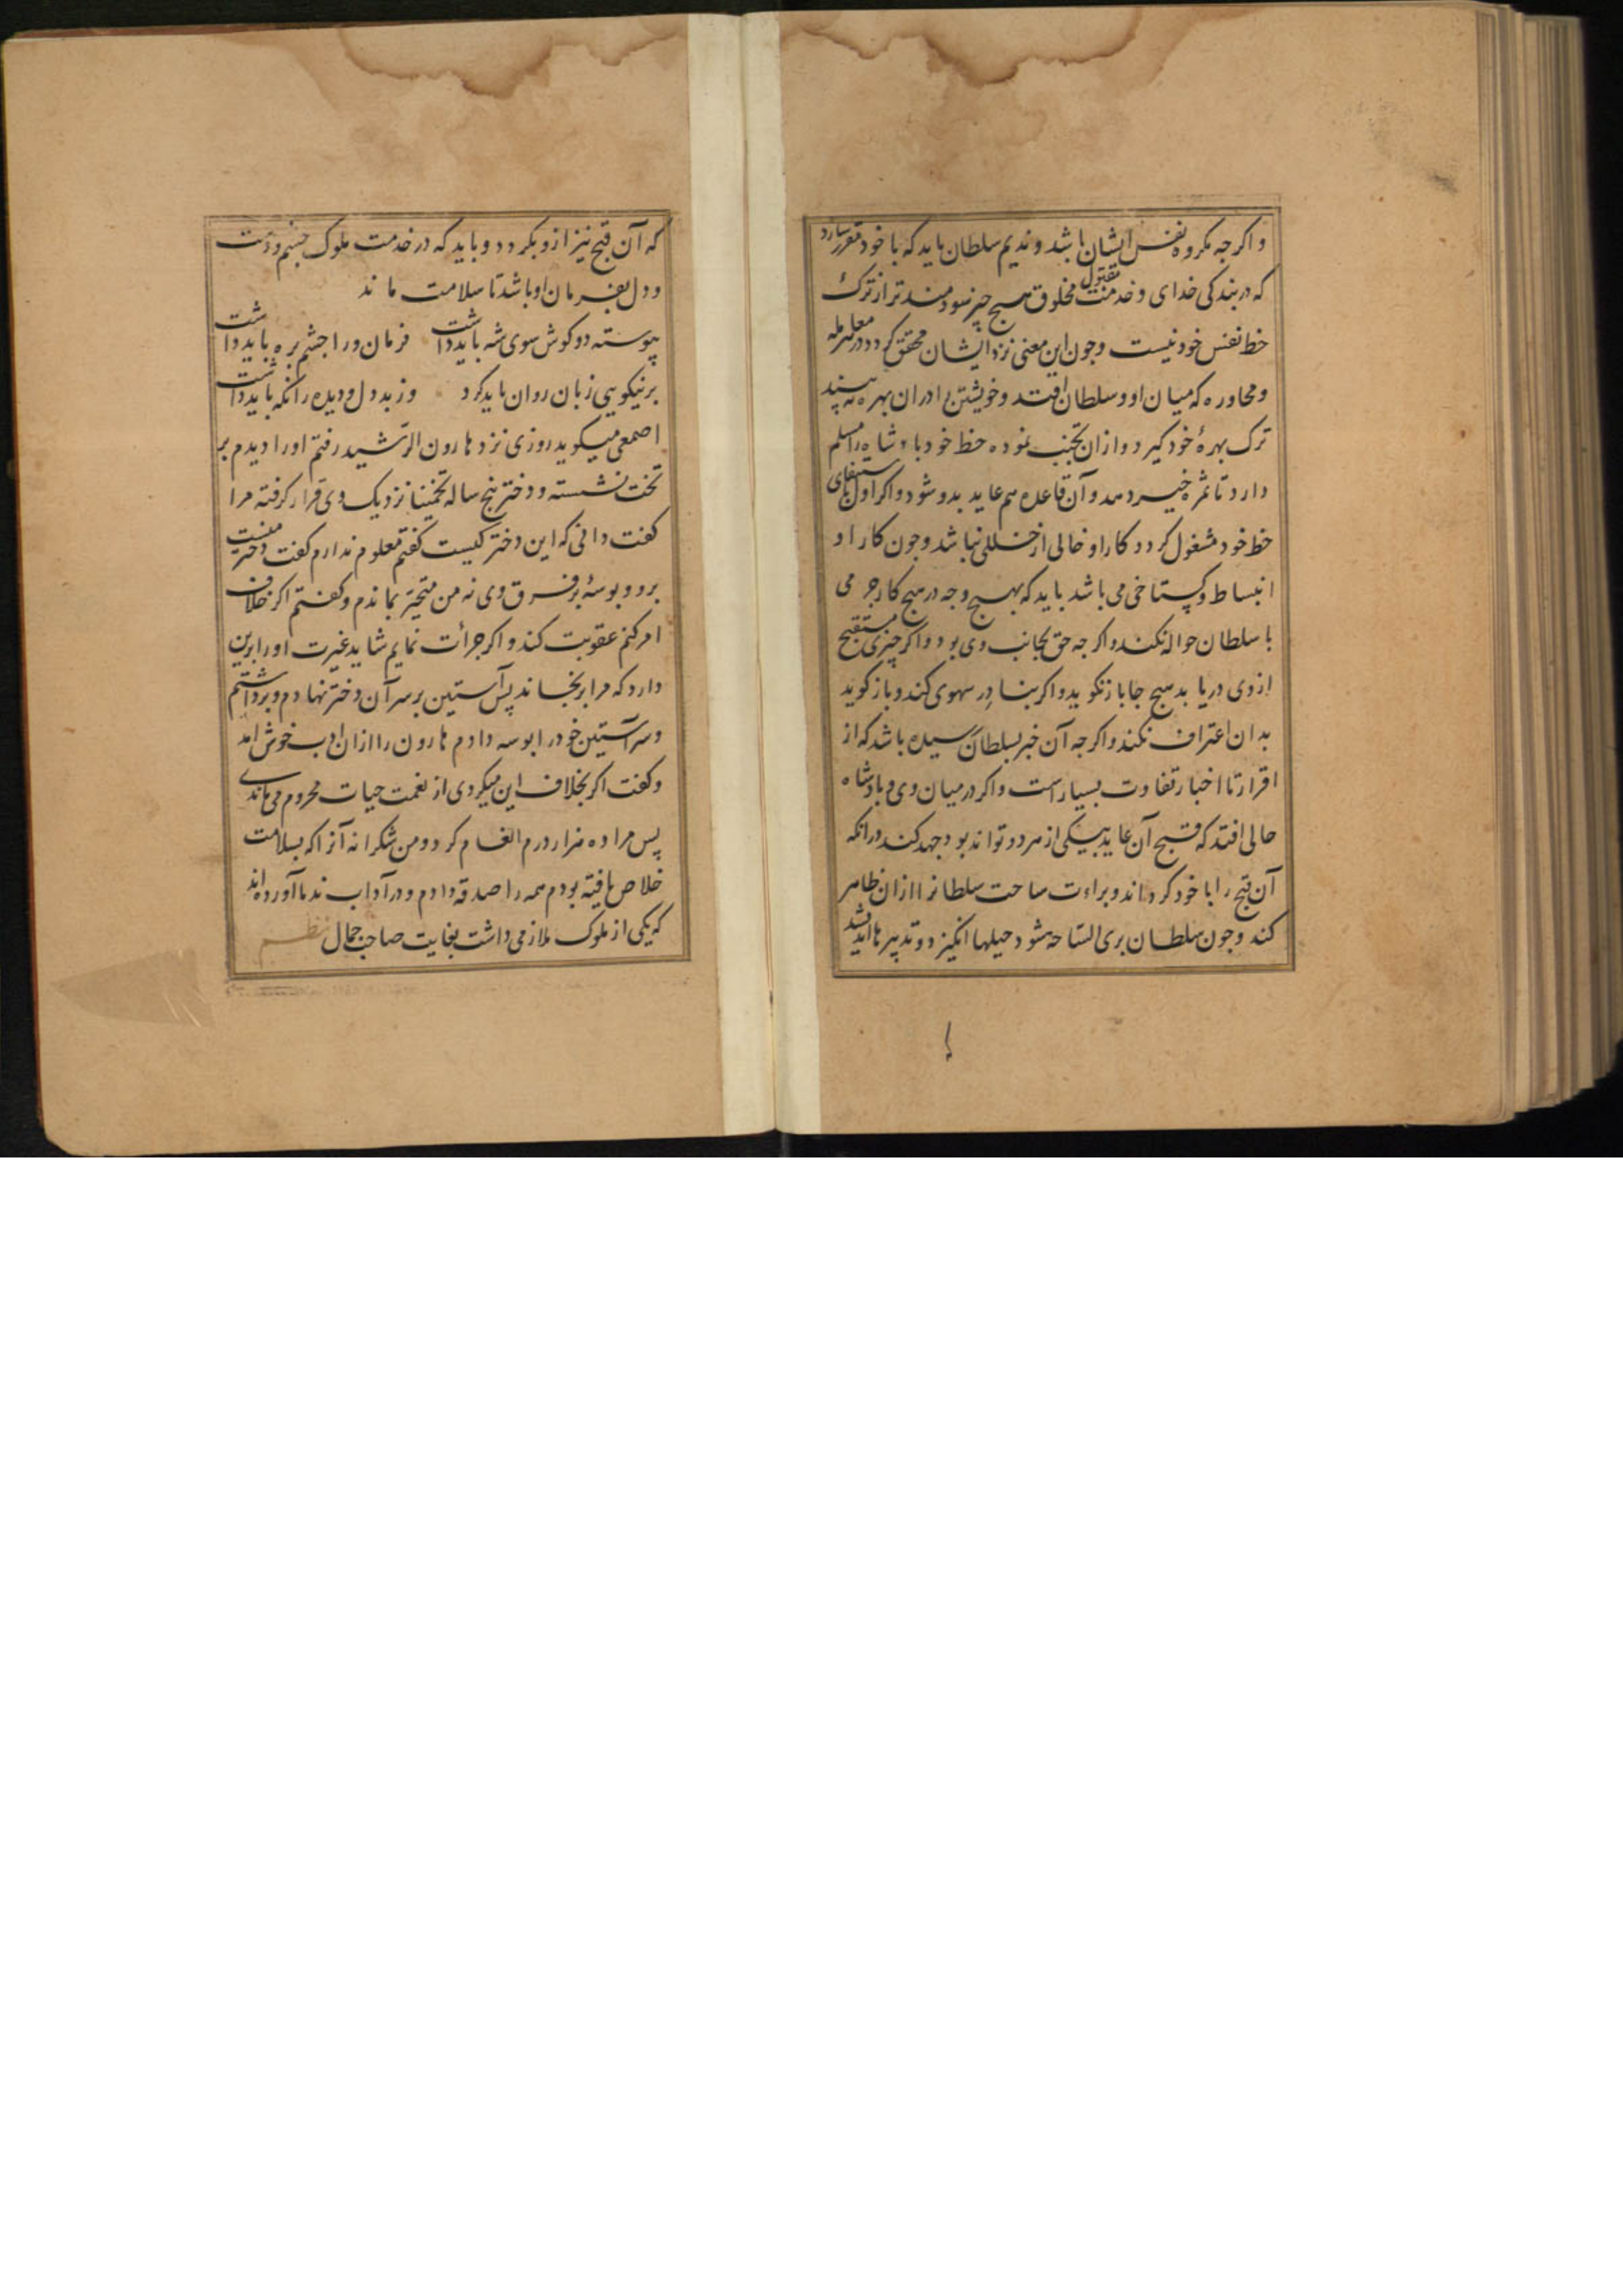 و اکرجه مکروه نفس ایشان باشد و ندیم سلطان باید که با خود مقرر سازد
که در بندکی خدای و خدمت مخلوق هیچ چیز سودمندتر از ترک
حظ نفس خود نیست وجون این معنی نزد ایشان محقق کردد در هر معامله
و محاوره که میان او و سلطان افتد و خویشتن را در ان بهره بیند
ترک بهرهٔ خود کیرد و ازان تجنب نموده حظ خود با شاه را مسلم
دارد تا ثمره خیر دهد و آن قاعده هم عاید بدو شود و اکر اول باستیفای
حظ خود مشغول کردد کار او خالی از خللی نباشد وجون کار او
انبساط و کستاخی می باشد باید که بهیچ وجه در هیچ کار جرمی
با سلطان حواله نکند و اکرجه حق بجانب وی بود و اکر چیزی مستقبح
از وی دریابد هیچ جا باز نکوید و اکر بنادر سهوی کند و باز کوید
بدان اعتراف نکند و اکرجه آن خبر بسلطان رسیده باشد که از
اقرار تا اخبار تفاوت بسیارست و اکر در میان وی و پادشاه
حالی افتد که قبح آن عاید بیکی از هر دو تواند بود جهد کند در انکه
آن قبح را با خود کرداند و براءت ساحت سلطانرا ازان ظاهر
کند وجون سلطان بری الساحه شود حیلها انکیزد و تدبیرها اندیشد
که آن قبح نیز ازو بکردد و باید که در خدمت ملوک جشم و دست
و دل بفرمان او باشد تا سلامت ماند
پیوسته دو کوش سوی شه باید داشت فرمان ورا جشم بره باید داشت
بر نیکویی زبان روان باید کرد وز بد دل و دیده را نکه باید داشت
اصمعی میکوید روزی نزد هارون الرّشید رفتم اورا دیدم بر
تخت نشسته و دختر پنج ساله تخمینا نزدیک وی قرار کرفته مرا
کفت دانی که این دختر کیست کفتم معلوم ندارم کفت دختر منست
برو و بوسهٔ بر فرق وی نه من متحیّر بماندم و کفتم اکر خلاف
امر کنم عقوبت کند و اکر جرأت نمایم شاید غیرت اورا برین
دارد که مرا برنجاند پس آستین بر سر آن دختر نهادم و برداشتم
و سر آستین خود را بوسه دادم هارون را ازان ادب خوش آمد
و کفت اکر بخلاف این میکردی از نعمت حیات محروم می ماندی
پس مرا ده هزار درم انعام کرد و من شکرانه آنرا که بسلامت
خلاص یافته بودم همه را صدقه دادم و در آداب ندما آورده اند
که یکی از ملوک ملازمی داشت بغایت صاحب جمال نظم